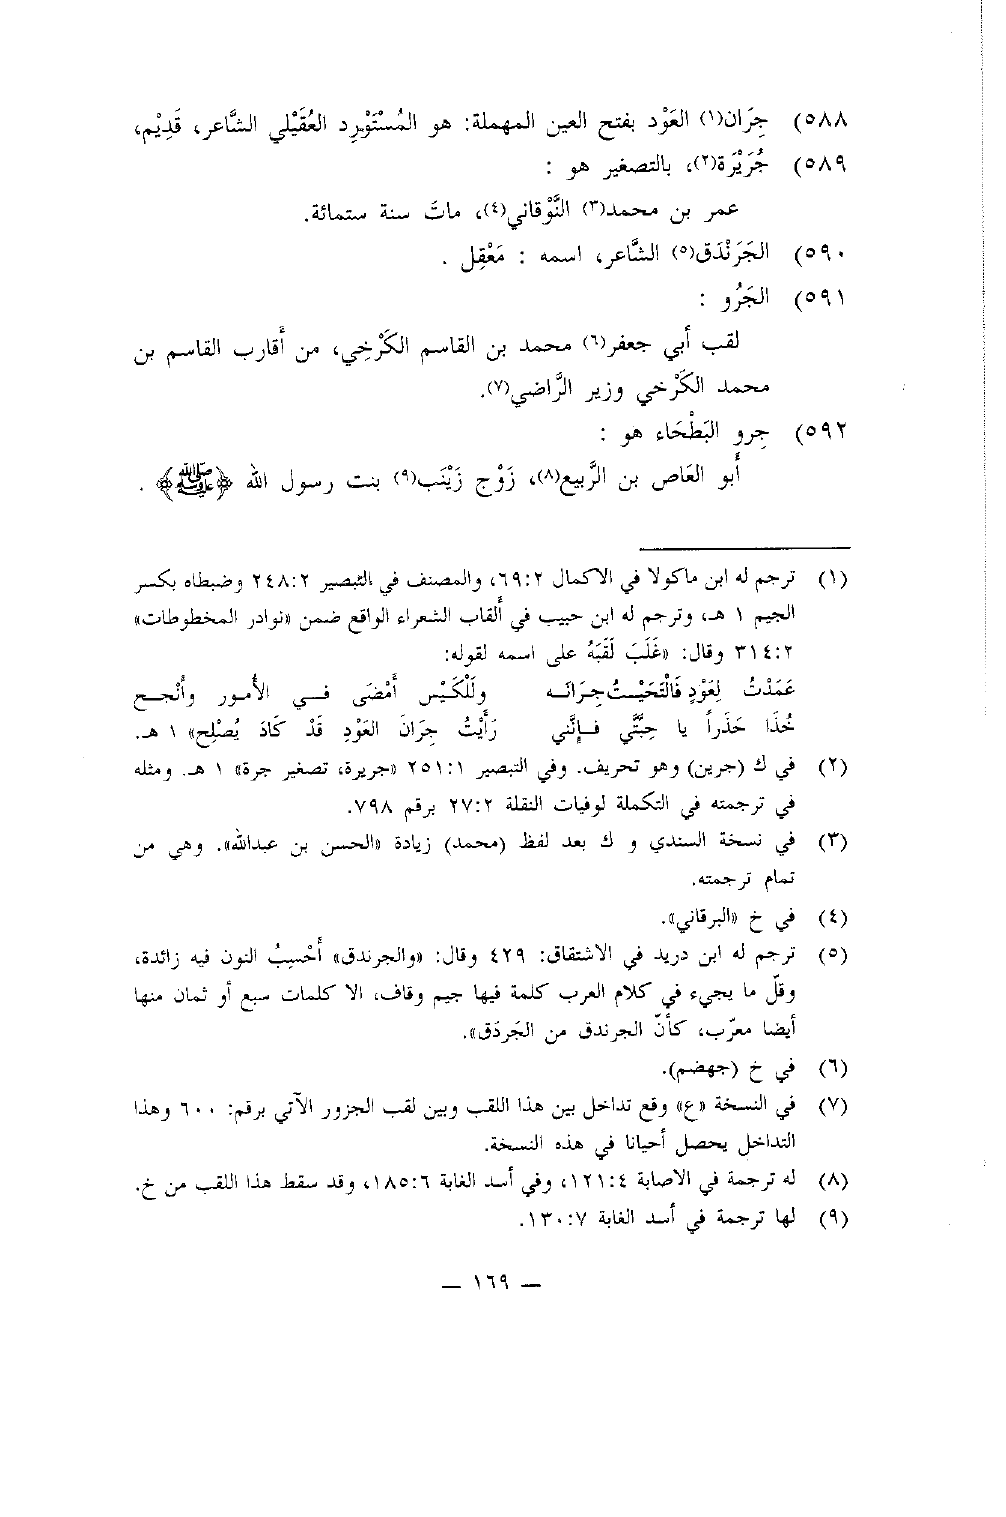 ٥٨٨) جِرَان(١) العَوْد بفتح العين المهملة: هو المُسْتَوْرِد العُقَيْلي الشَّاعر، قَدِيْم،
٥٨٩) جُرَيْرَة(٢)، بالتصغير هو :
عمر بن محمد(٣) النَّوْقاني(٤)، ماتَ سنة ستمائة.
٥٩٠) الجَرَنْدَق(٥) الشَّاعر، اسمه : مَعْقِل .
٥٩١) الجَرُو :
لقب أبي جعفر(٦) محمد بن القاسم الكَرْخِي، من أقارب القاسم بن
محمد الكَرْخي وزير الرَّاضي(٧).
٥٩٢) جِرو البَطْحَاء هو :
أبو العَاص بن الرَّبيع(٨)، زَوْج زَيْنَب(٩) بنت رسول الله ﴿ﷺ﴾ .
(١) ترجم له ابن ماكولا في الاكمال ٦٩:٢، والمصنف في التبصير ٢٤٨:٢ وضبطاه بكسر
الجيم ١ هـ، وترجم له ابن حبيب في ألقاب الشعراء الواقع ضمن «نوادر المخطوطات»
٣١٤:٢ وقال: «غَلَبَ لَقَبَهُ على اسمه لقوله:
عَمَدْتُ لِعَوْدٍ فَالْتَحَيْـتُ جِرَانَــه وللْكَيْس أَمْضَى فــي الأُمـور وأَنْجـح
خُذَا حَذَراً يا حِبَّتَّي فـإِنَّني رَأَيْتُ جِرَانَ العَوْدِ قَدْ كَادَ يُصْلِح» ١ هـ.
(٢) في ك (جرين) وهو تحريف. وفي التبصير ٢٥١:١ «جريرة، تصغير جرة» ١ هـ. ومثله
في ترجمته في التكملة لوفيات النقلة ٢٧:٢ برقم ٧٩٨.
(٣) في نسخة السندي و ك بعد لفظ (محمد) زيادة «الحسن بن عبدالله». وهي من
تمام ترجمته.
(٤) في خ «البرقاني».
(٥) ترجم له ابن دريد في الاشتقاق: ٤٢٩ وقال: «والجرندق» أَحْسِبُ النون فيه زائدة،
وقلّ ما يجيء في كلام العرب كلمة فيها جيم وقاف، الا كلمات سبع أو ثمان منها
أيضا معرّب، كأنّ الجرندق من الجَردَق».
(٦) في خ (جهضم).
(٧) في النسخة «ع» وقع تداخل بين هذا اللقب وبين لقب الجزور الآتي برقم: ٦٠٠ وهذا
التداخل يحصل أحيانا في هذه النسخة.
(٨) له ترجمة في الاصابة ١٢١:٤، وفي أسد الغابة ١٨٥:٦، وقد سقط هذا اللقب من خ.
(٩) لها ترجمة في أسد الغابة ١٣٠:٧.
— ١٦٩ —